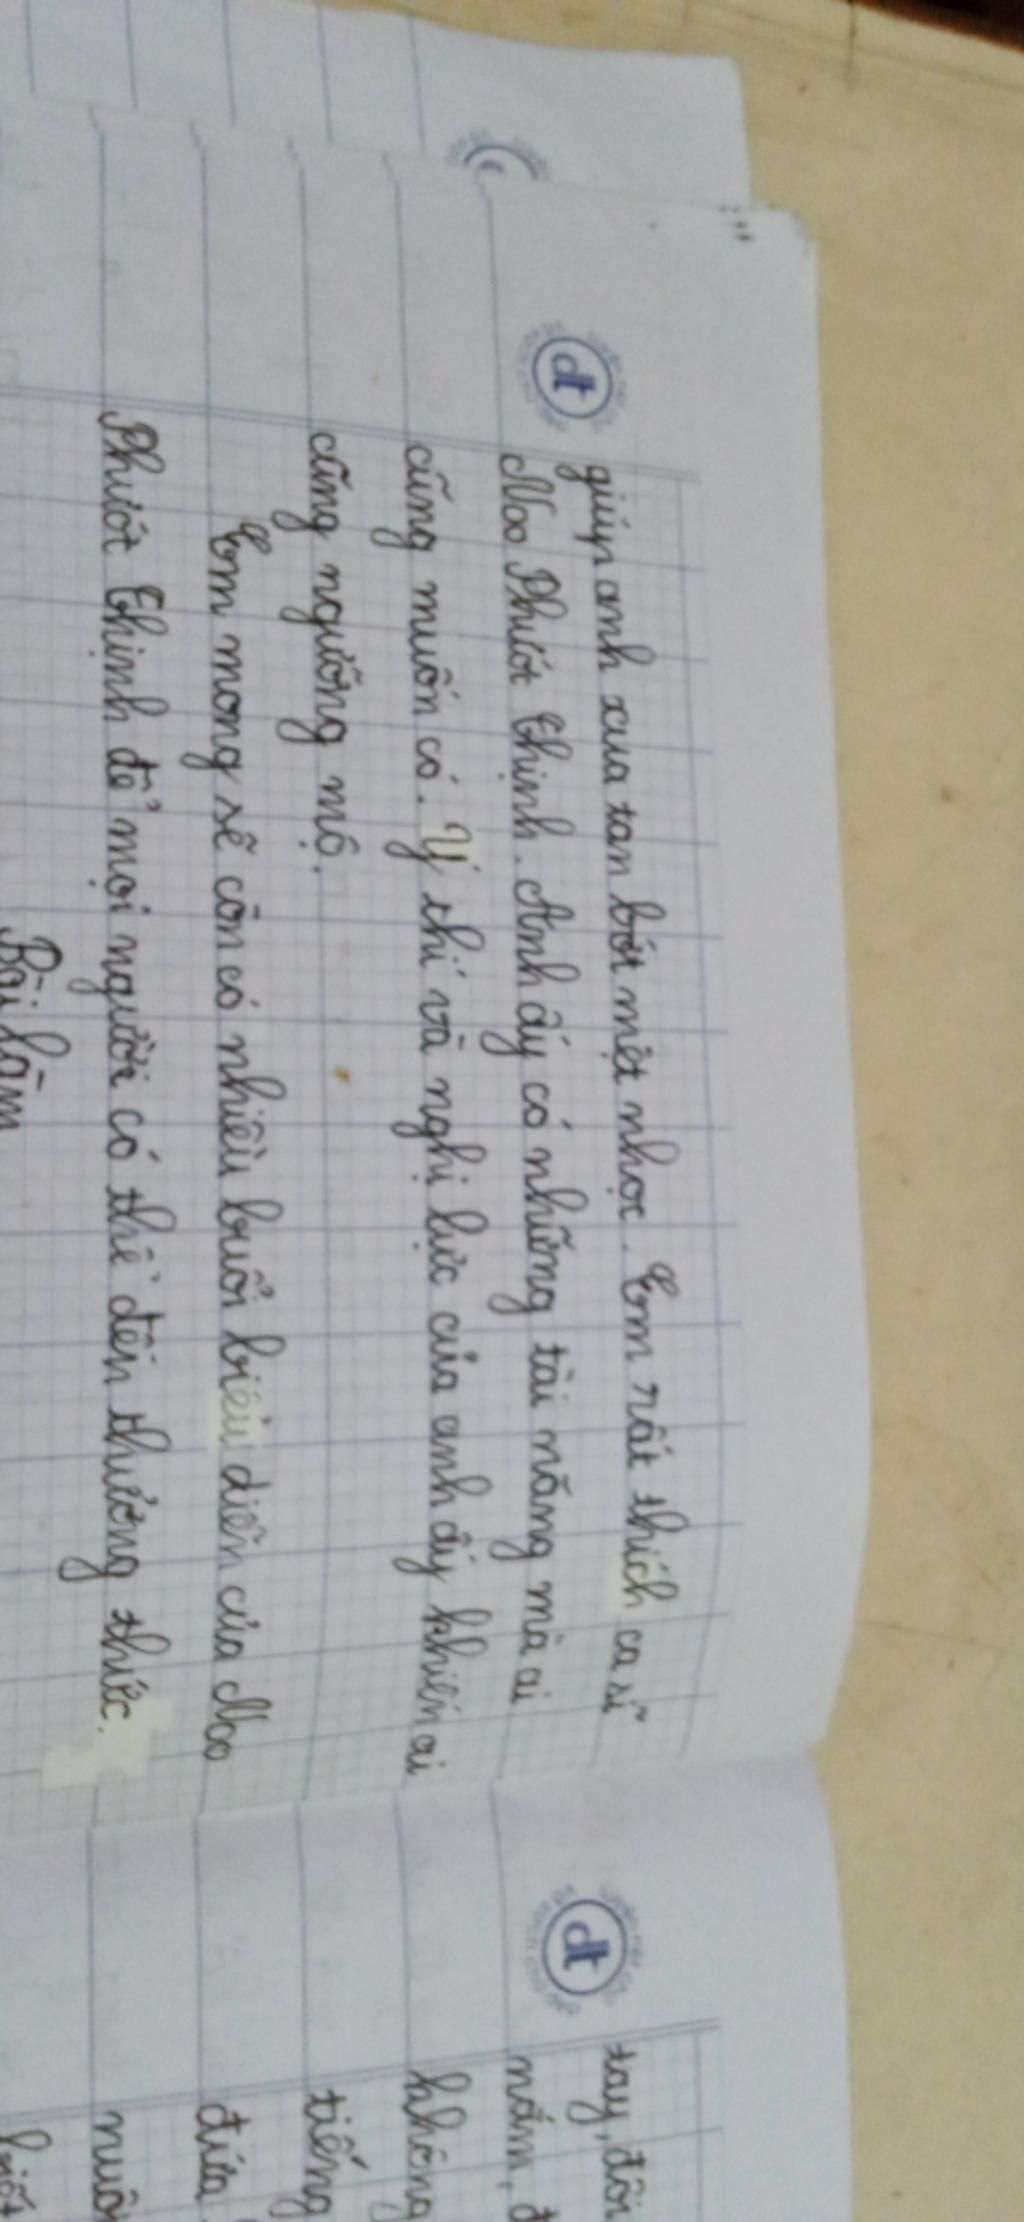 giúp anh xua tan bớt mệt nhọc. Em rất thích ca sĩ
Noo Phước Thịnh. Anh ấy có những tài năng mà ai
cũng muốn có. Ý chí và nghị lực của anh ấy khiến ai
cũng ngưỡng mộ.
Em mong sẽ còn có nhiều buổi biểu diễn của Noo
Phước Thịnh để mọi người có thể đến thưởng thức.
Bài làm
dt
dt
tay, đôi
nắm, đ
không
tiếng
đứa
nuôi
biết